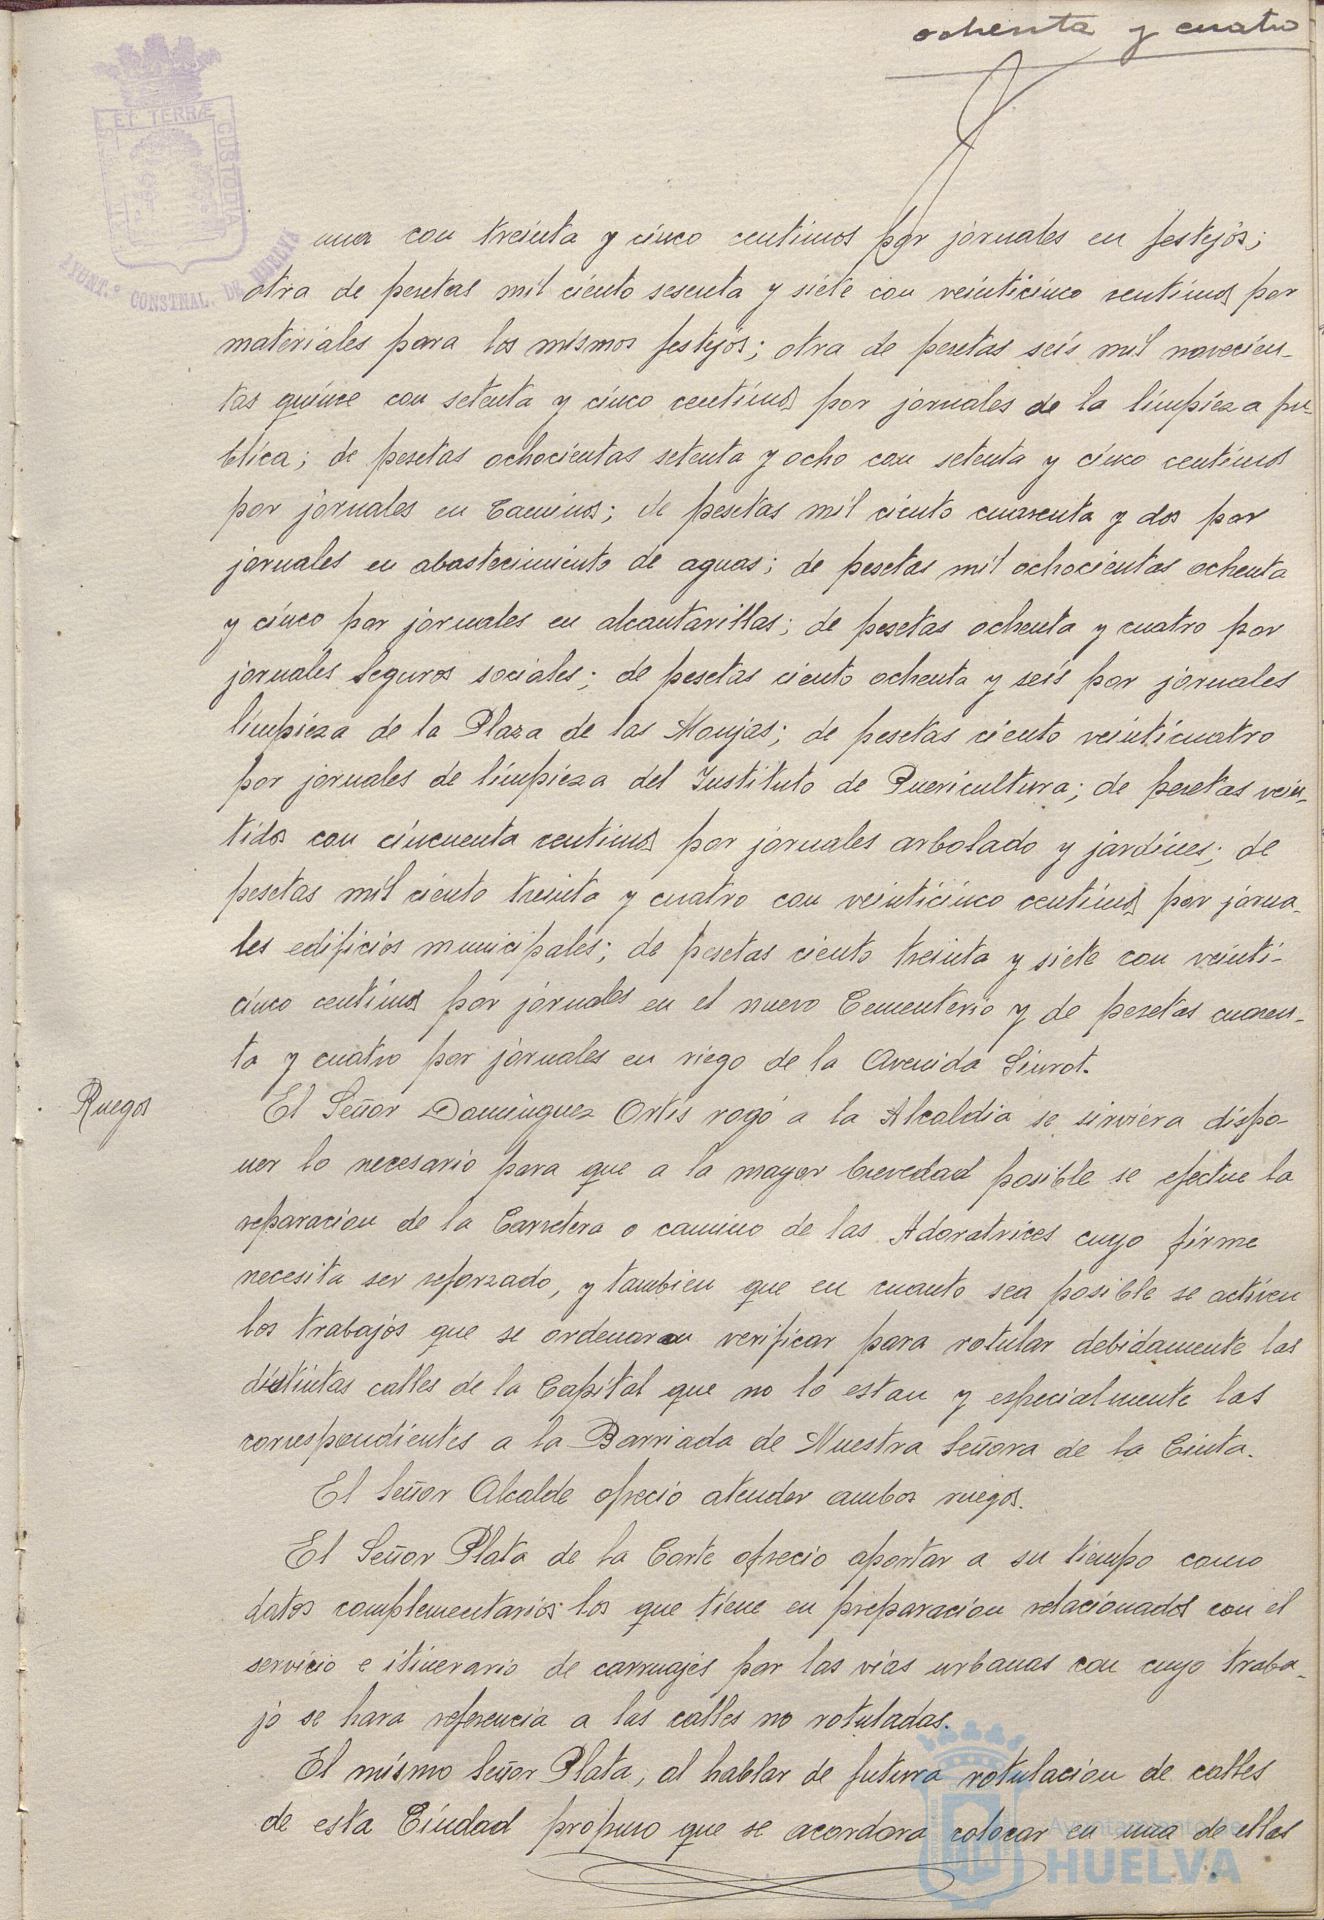 ochenta y cuatro
ET TERRÆ
CUSTODIA
AYUNT.º CONSTNAL. DE HUELVA
una con treinta y cinco centimos por jornales en festejos;
otra de pesetas mil ciento sesenta y siete con veinticinco centimos por
materiales para los mismos festejos; otra de pesetas seis mil novecien-
tas quince con setenta y cinco centimos por jornales de la limpieza pu-
blica; de pesetas ochocientas setenta y ocho con setenta y cinco centimos
por jornales en Caminos; de pesetas mil ciento cuarenta y dos por
jornales en abastecimiento de aguas; de pesetas mil ochocientas ochenta
y cinco por jornales en alcantarillas; de pesetas ochenta y cuatro por
jornales Seguros sociales; de pesetas ciento ochenta y seis por jornales
limpieza de la Plaza de las Monjas; de pesetas ciento veinticuatro
por jornales de limpieza del Instituto de Puericultura; de pesetas vein-
tidos con cincuenta centimos por jornales arbolado y jardines; de
pesetas mil ciento treinta y cuatro con veinticinco centimos por jorna-
les edificios municipales; de pesetas ciento treinta y siete con veinti-
cinco centimos por jornales en el nuevo Cementerio y de pesetas cuaren-
ta y cuatro por jornales en riego de la Avenida Siurot.
Ruegos
El Señor Dominguez Ortis rogó a la Alcaldia se sirviera dispo-
ner lo necesario para que a la mayor brevedad posible se efectue la
reparacion de la Carretera o camino de las Adoratrices cuyo firme
necesita ser reforzado, y tambien que en cuanto sea posible se activen
los trabajos que se ordenaron verificar para rotular debidamente las
distintas calles de la Capital que no lo estan y especialmente las
correspondientes a la Barriada de Nuestra Señora de la Cinta.
El Señor Alcalde ofrecio atender ambos ruegos.
El Señor Plata de la Corte ofrecio aportar a su tiempo como
datos complementarios los que tiene en preparacion relacionados con el
servicio e itinerario de carruajes por las vias urbanas con cuyo traba-
jo se hara referencia a las calles no rotuladas.
El mismo Señor Plata, al hablar de futura rotulacion de calles
de esta Ciudad propuso que se acordara colocar en una de ellas
Ayuntamiento de
HUELVA